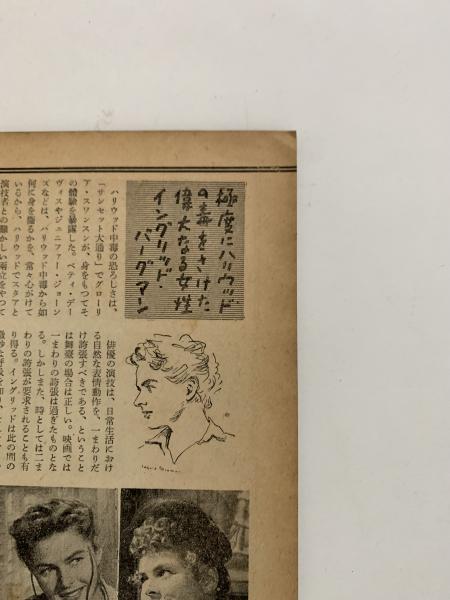 極度にハリウッド
の毒をさけた
偉大なる女性
イングリッド・
バーグマン
ハリウッド中毒の恐ろしさは、
「サンセット大通り」でグローリ
ア・スワンスンが、身をもつてそ
の体驗を暴露した。ベティ・デー
ヴィスやジェニファー・ジョーン
ズなどは、ハリウッド中毒から如
何に身を護るかを、常々心がけて
いるから、ハリウッドでスタアと
俳優の演技は、日常生活におけ
る自然な表情動作を、一まわりだ
け誇張すべきである、ということ
は舞臺の場合は正しい。映画では
一まわりの誇張は過ぎたものとな
る。しかしまた、時としては二ま
わりの誇張が要求されることも有
り得る。イングリッドは此の間の